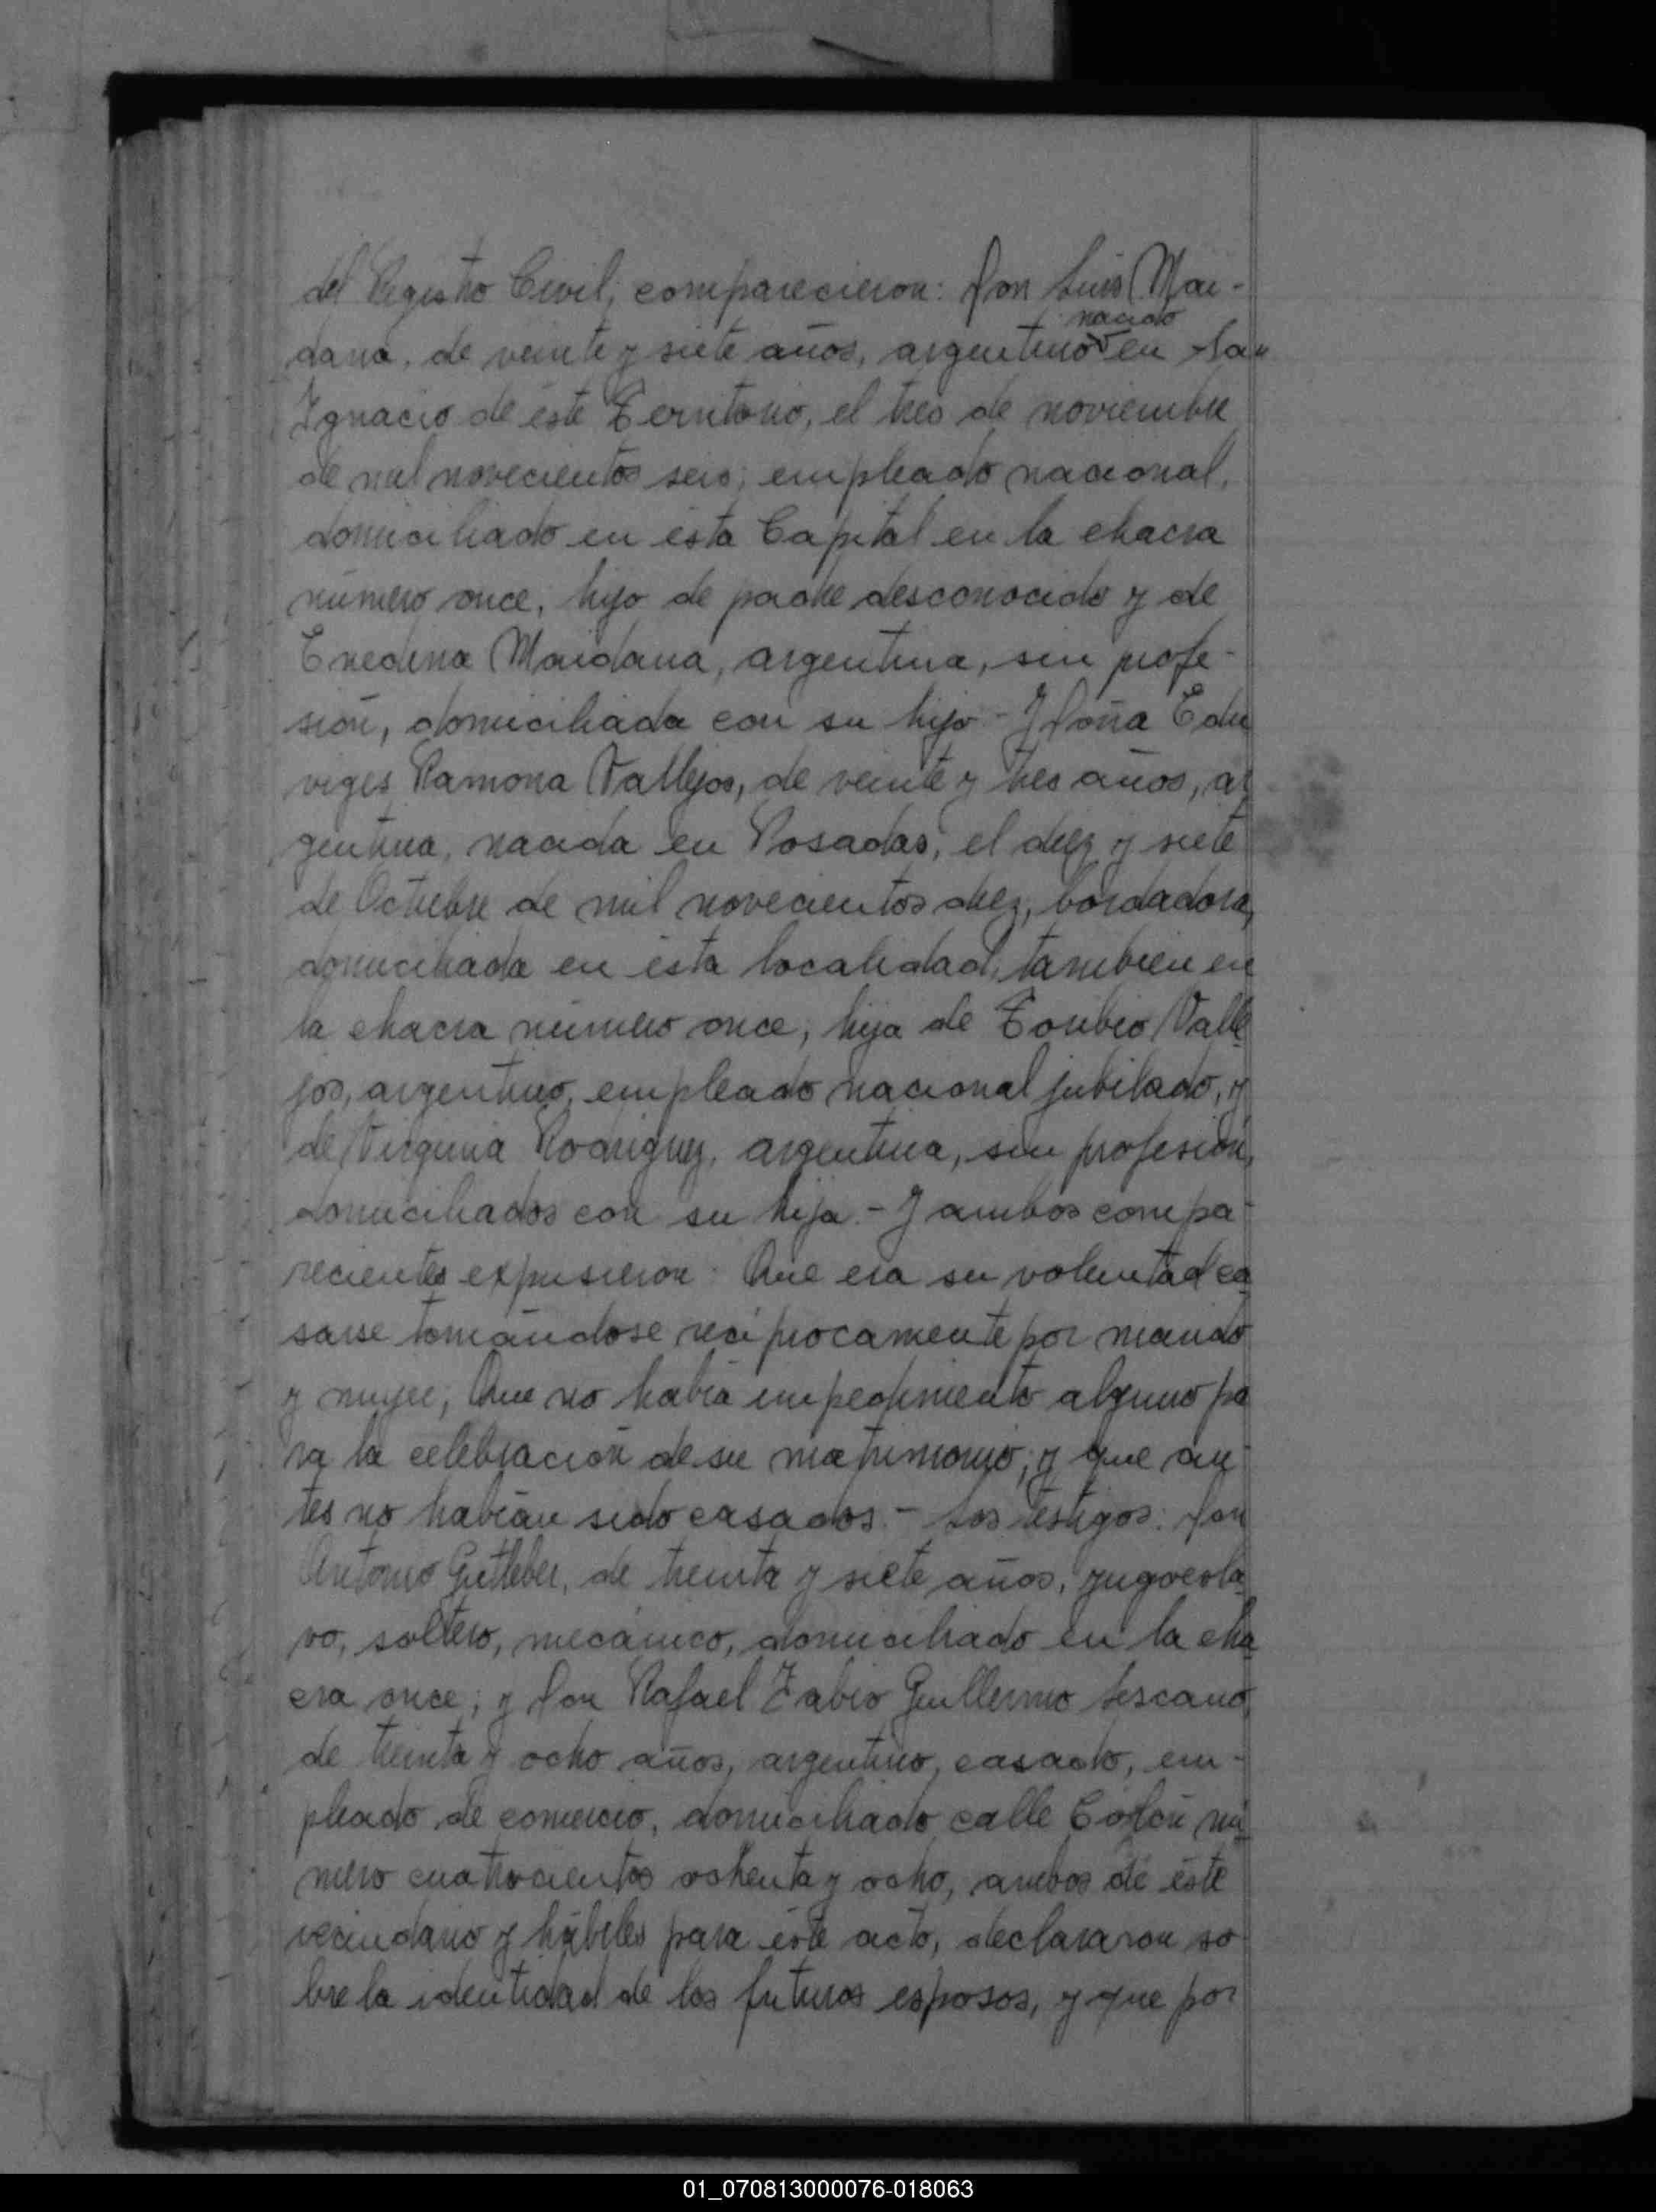 del Registro Civil; comparecieron: Don Luis Mai-
dana, de veinte y siete años, argentino nacido en San
Ignacio de éste Territorio, el tres de noviembre
de mil novecientos seis; empleado nacional,
domiciliado en ésta Capital en la chacra
número once, hijo de padre desconocido y de
Enedina Maidana, argentina, sin profe-
sión, domiciliada con su hijo - Y Doña Edu
viges Ramona Vallejos, de veinte y tres años, ar
gentina, nacida en Posadas, el diez y siete
de Octubre de mil novecientos diez, bordadora,
domiciliada en ésta localidad, tambien en
la chacra número once, hija de Toribio Valle
jos, argentino, empleado nacional jubilado, y
de Virginia Rodriguez, argentina, sin profesión,
domiciliados con su hija.- Y ambos compa-
recientes expusieron: Que era su voluntad ca
sarse tomándose reciprocamente por marido
y mujer; Que no habia impedimento alguno pa
ra la celebración de su matrimonio; y que an-
tes no habian sido casados.- Los testigos: Don
Antonio Gutleber, de treinta y siete años, yugoesla
vo, soltero, mecánico, domiciliado en la cha
cra once; y Don Rafael Fabio Guillermo Lescano,
de treinta y ocho años, argentino, casado, em-
pleado de comercio, domiciliado calle Colón nú
mero cuatrocientos ochenta y ocho, ambos de éste
vecindario y hábiles para éste acto, declararon so
bre la identidad de los futuros esposos, y que por
01_070813000076-018063